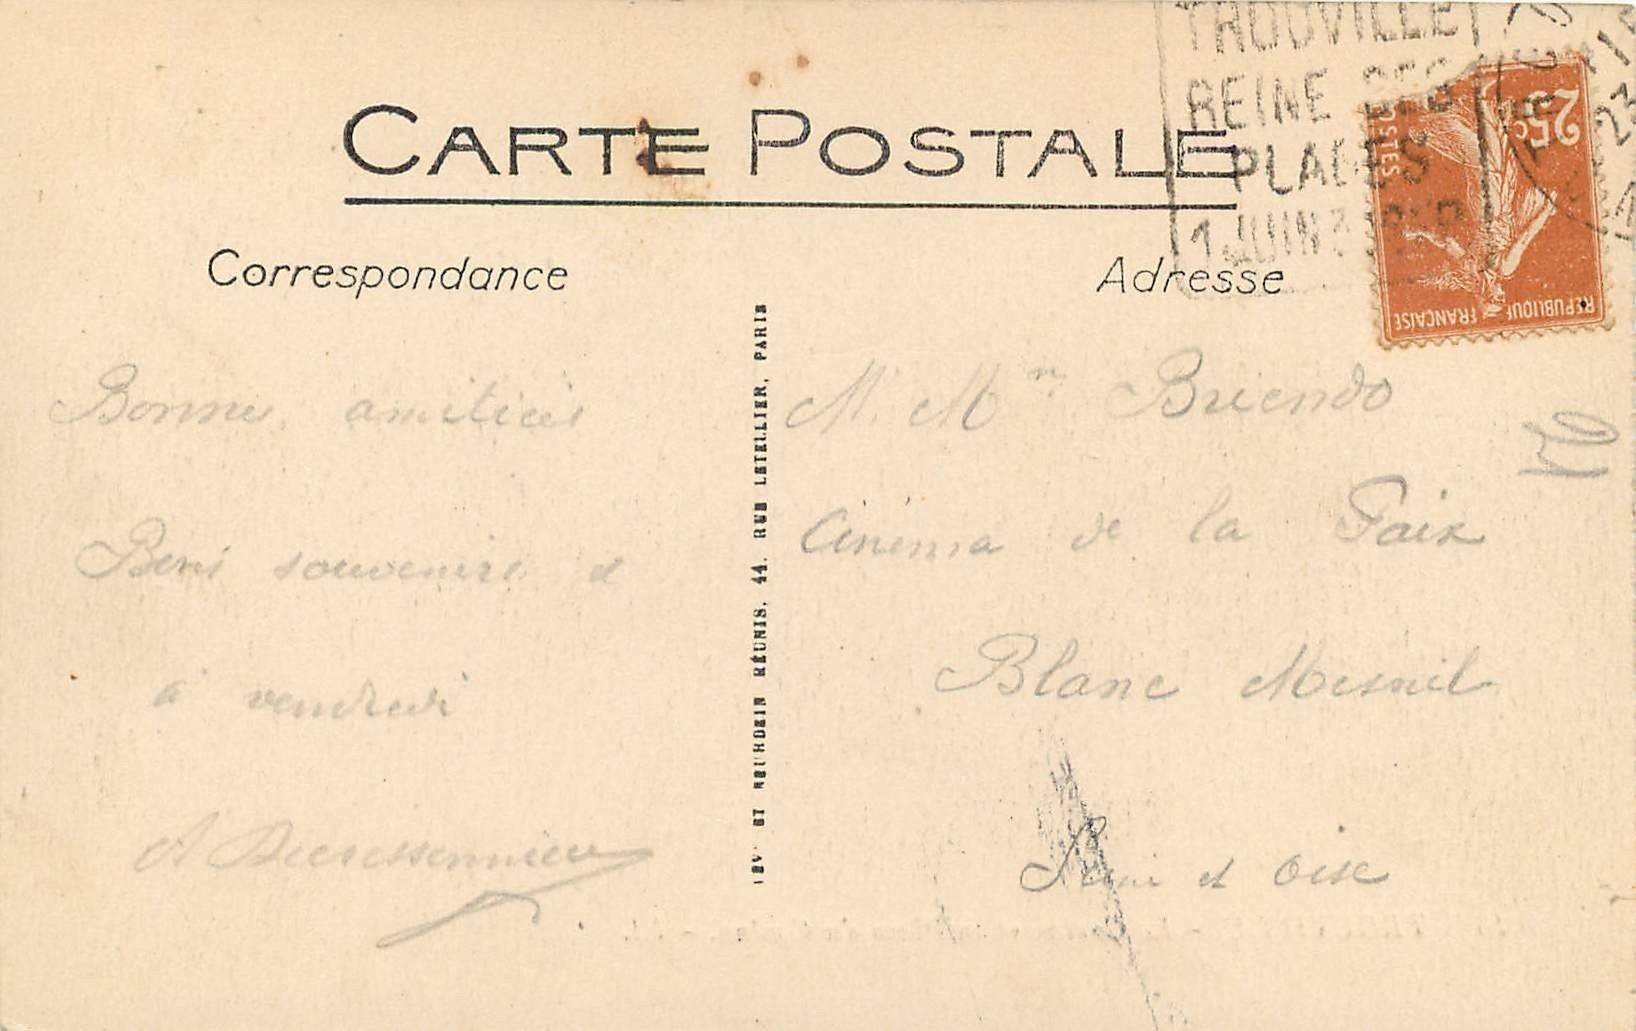 TROUVILLE
REINE DES
PLAGES
1 JUIN
CARTE POSTALE
25c
POSTES
REPUBLIQUE FRANCAISE
Correspondance
Adresse
Bonnes amitiés
Bons souvenirs et
à vendredi
M. Mm Briendo
Cinéma de la Paix
Blanc Mesnil
Seine et Oise
LEVY ET NEURDEIN RÉUNIS, 44, RUE LETELLIER, PARIS